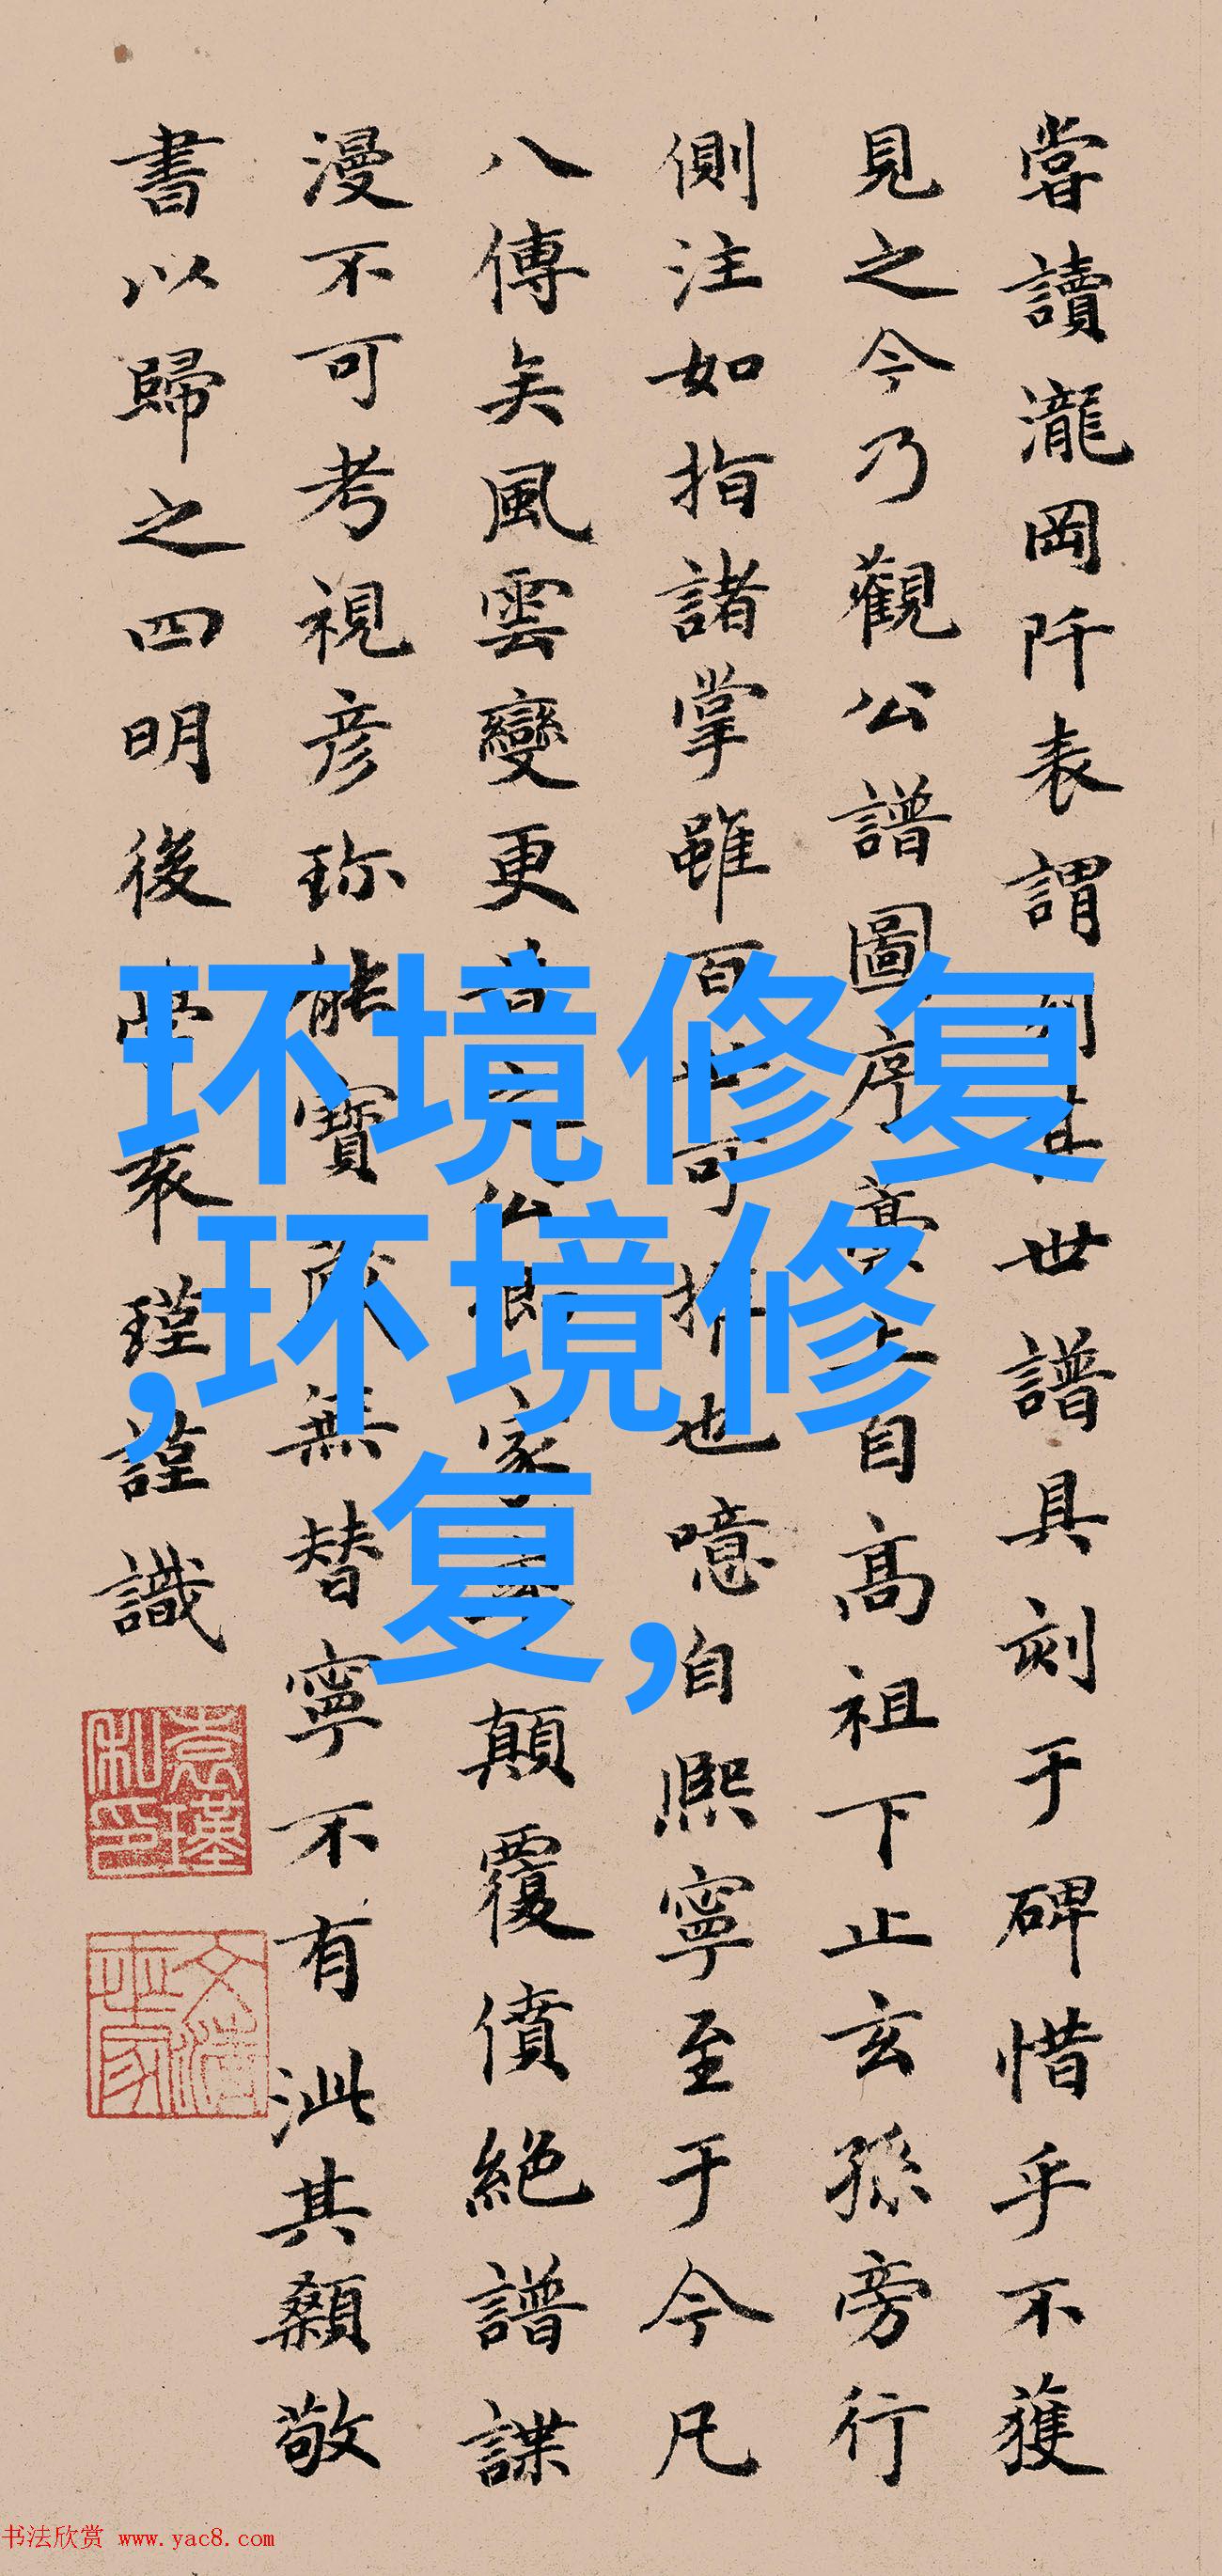 嘗讀瀧岡阡表謂世譜具刻于碑惜乎不獲
見之今乃觀公譜圖序自高祖下止玄孫旁行
側注如指諸掌雖百可也噫自熙寧至于今凡
八傳矣風雲變更家顛覆債絕譜諜
漫不可考視彦珎能寶無替寧不有泚其顙敬
書以歸之四明後學袁瑾謹識
环境修复
,环境修
复,
袁瑾私印
书法欣赏 www.yac8.com